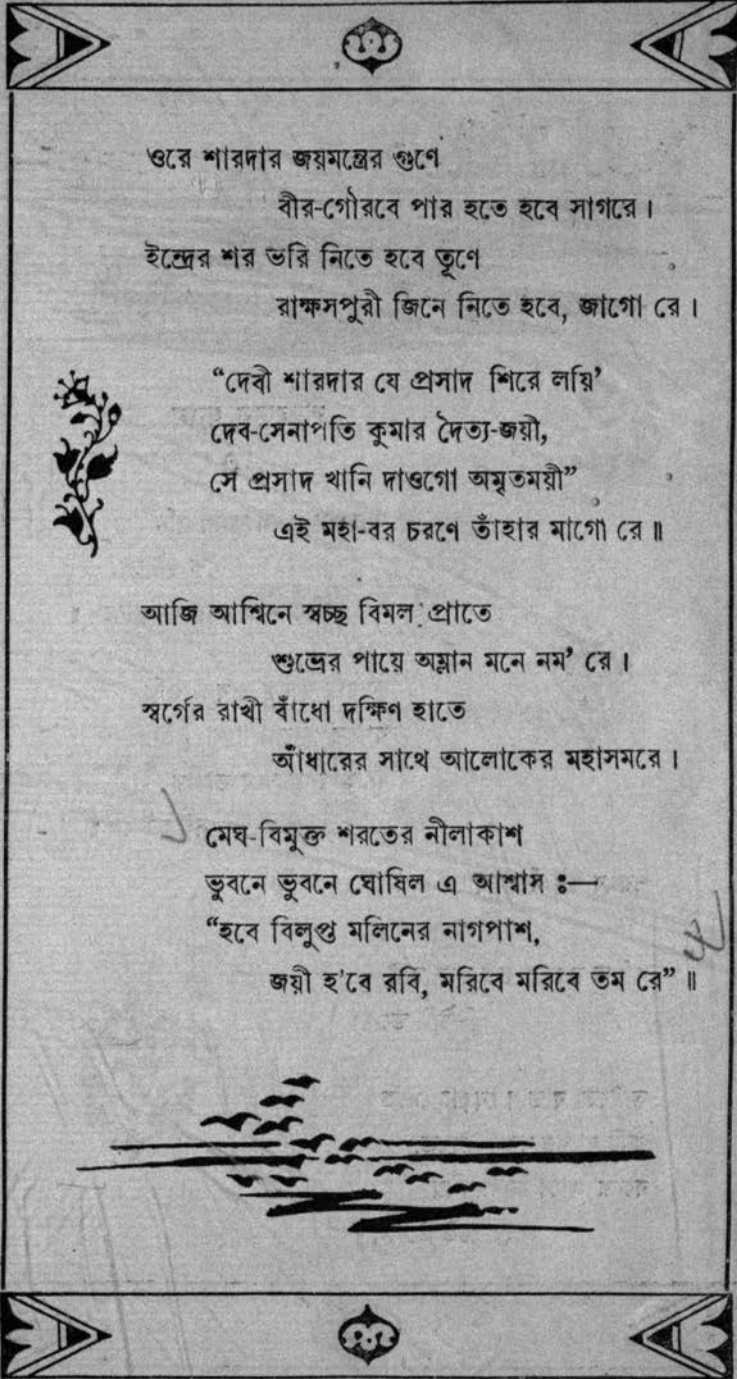 ওরে শারদার জয়মন্ত্রের গুণে
বীর-গৌরবে পার হতে হবে সাগরে।
ইন্দ্রের শর ভরি নিতে হবে তূণে
রাক্ষসপুরী জিনে নিতে হবে, জাগো রে।
“দেবী শারদার যে প্রসাদ শিরে লয়ি’
দেব-সেনাপতি কুমার দৈত্য-জয়ী,
সে প্রসাদ খানি দাওগো অমৃতময়ী”
এই মহা-বর চরণে তাঁহার মাগো রে॥
আজি আশ্বিনে স্বচ্ছ বিমল প্রাতে
শুভ্রের পায়ে অম্লান মনে নম’ রে।
স্বর্গের রাখী বাঁধো দক্ষিণ হাতে
আঁধারের সাথে আলোকের মহাসমরে।
মেঘ-বিমুক্ত শরতের নীলাকাশ
ভুবনে ভুবনে ঘোষিল এ আশ্বাস ঃ—
“হবে বিলুপ্ত মলিনের নাগপাশ,
জয়ী হ'বে রবি, মরিবে মরিবে তম রে”॥